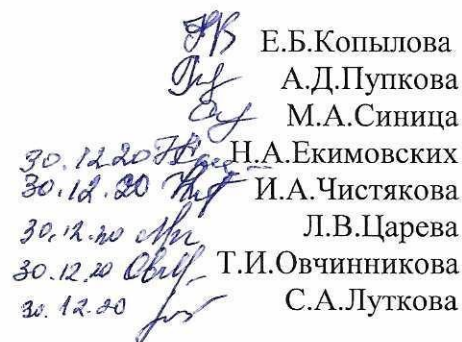 Е.Б.Копылова
А.Д.Пупкова
М.А.Синица
30.12.20 Н.А.Екимовских
30.12.20 И.А.Чистякова
30.12.20 Л.В.Царева
30.12.20 Т.И.Овчинникова
30.12.20 С.А.Луткова